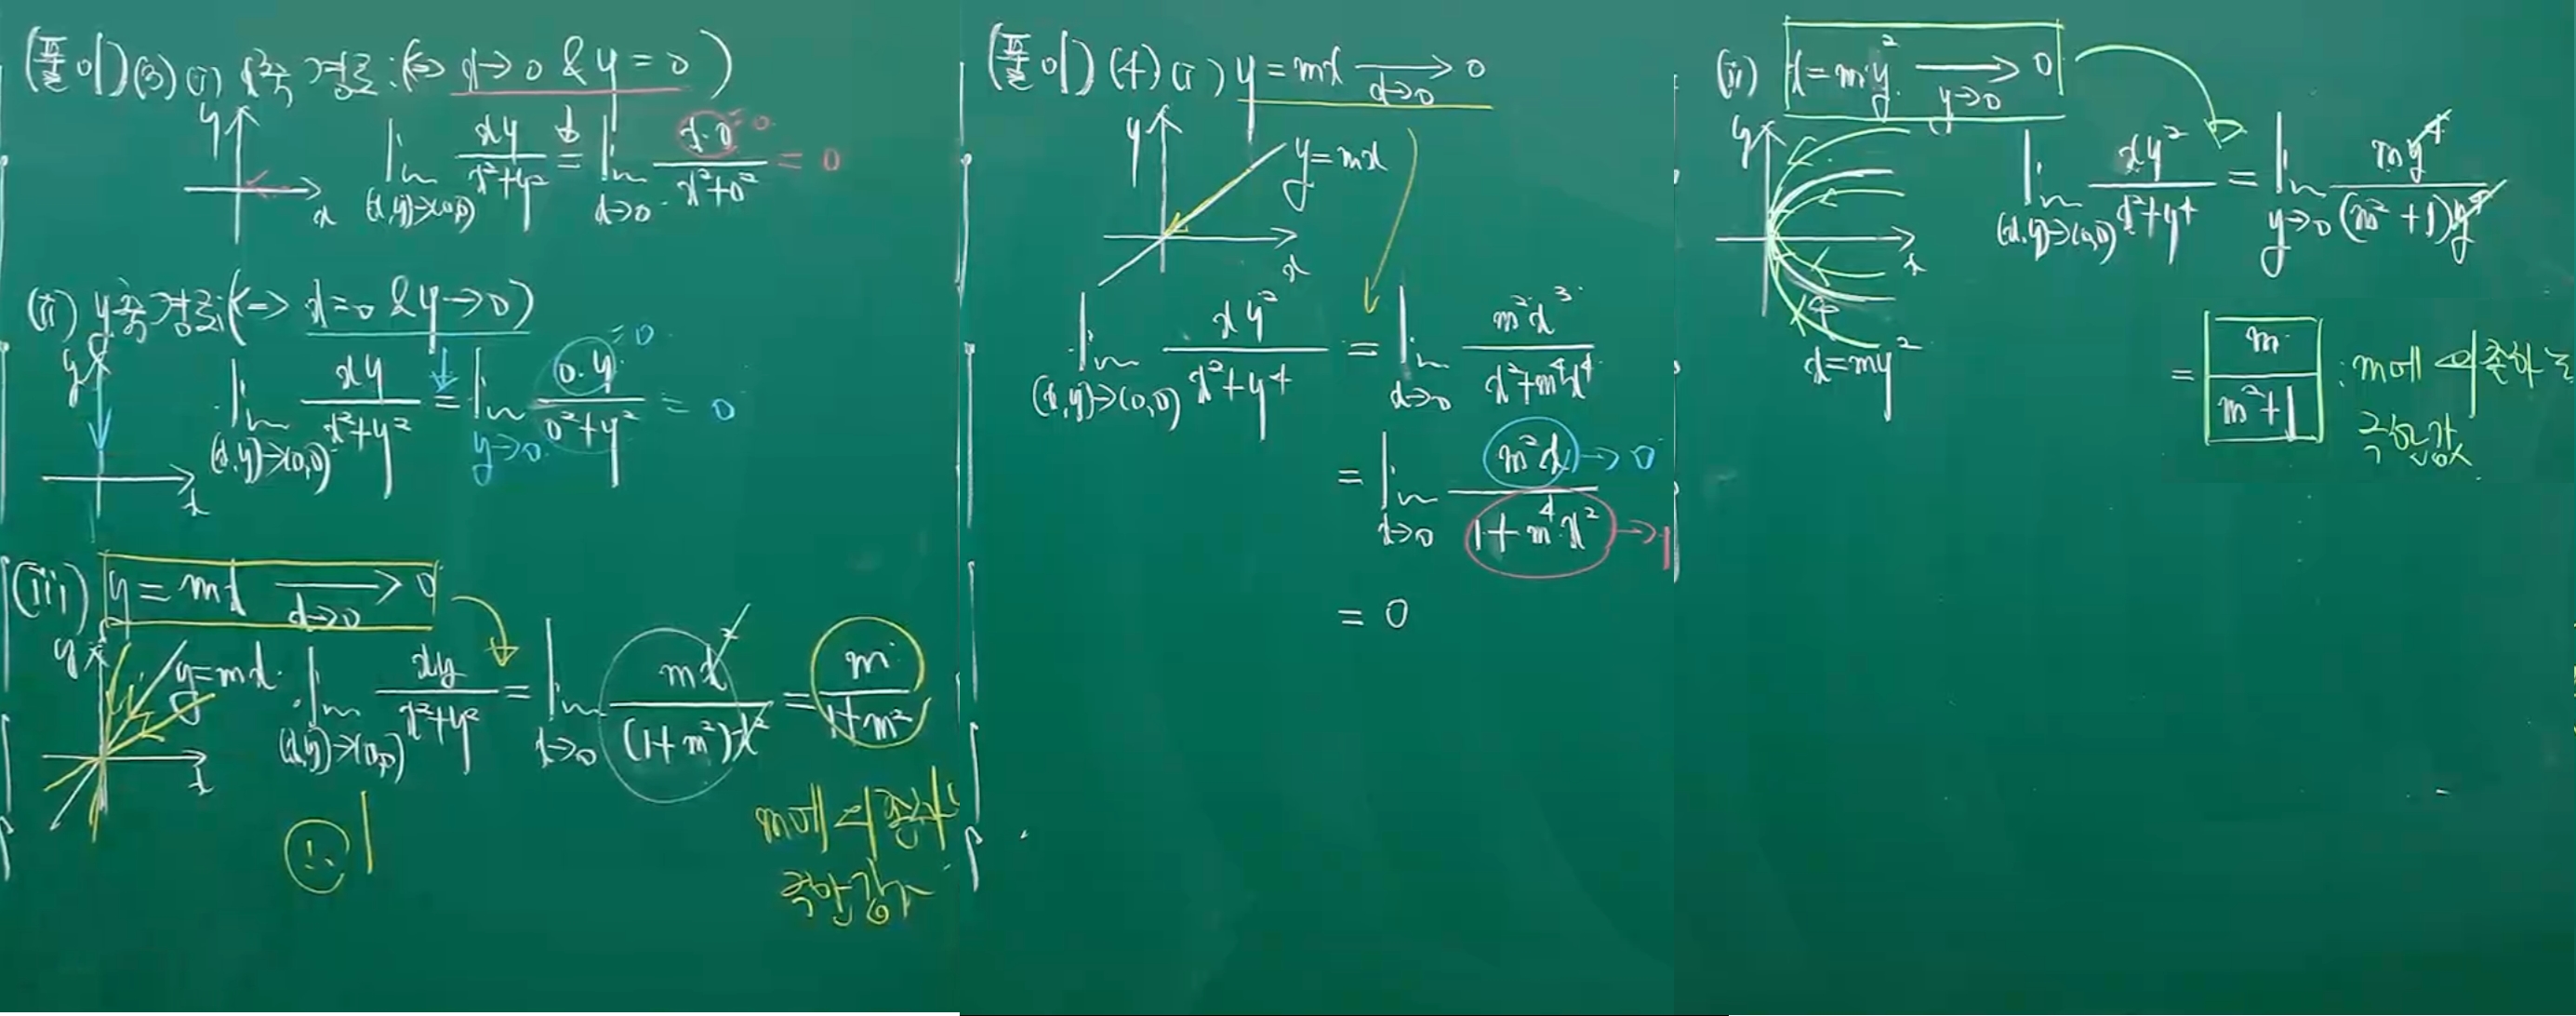 (풀이) (3) (i) x축 경로 : (⇔ x→0 & y = 0 )
y
x
lim_{(x,y)→(0,0)} xy / x²+y² = lim_{x→0} x·0 / x²+0² = 0
= 0
(ii) y축 경로 : (⇔ x=0 & y→0)
y
x
lim_{(x,y)→(0,0)} xy / x²+y² = lim_{y→0} 0·y / 0²+y² = 0
= 0
(iii) y = mx →_{x→0} 0
y
y=mx
x
lim_{(x,y)→(0,0)} xy / x²+y² = lim_{x→0} mx² / (1+m²)x² = m / 1+m²
m에 의존하
극한값
(풀이) (4) (i) y = mx →_{x→0} 0
y
y=mx
x
lim_{(x,y)→(0,0)} xy² / x²+y⁴ = lim_{x→0} m²x³ / x²+m⁴x⁴
= lim_{x→0} m²x / 1+m⁴x²
→ 0
→ 1
= 0
(ii) x=my² →_{y→0} 0
y
x
x=my²
lim_{(x,y)→(0,0)} xy² / x²+y⁴ = lim_{y→0} my⁴ / (m²+1)y⁴
= m / m²+1 : m에 의존하는
극한값